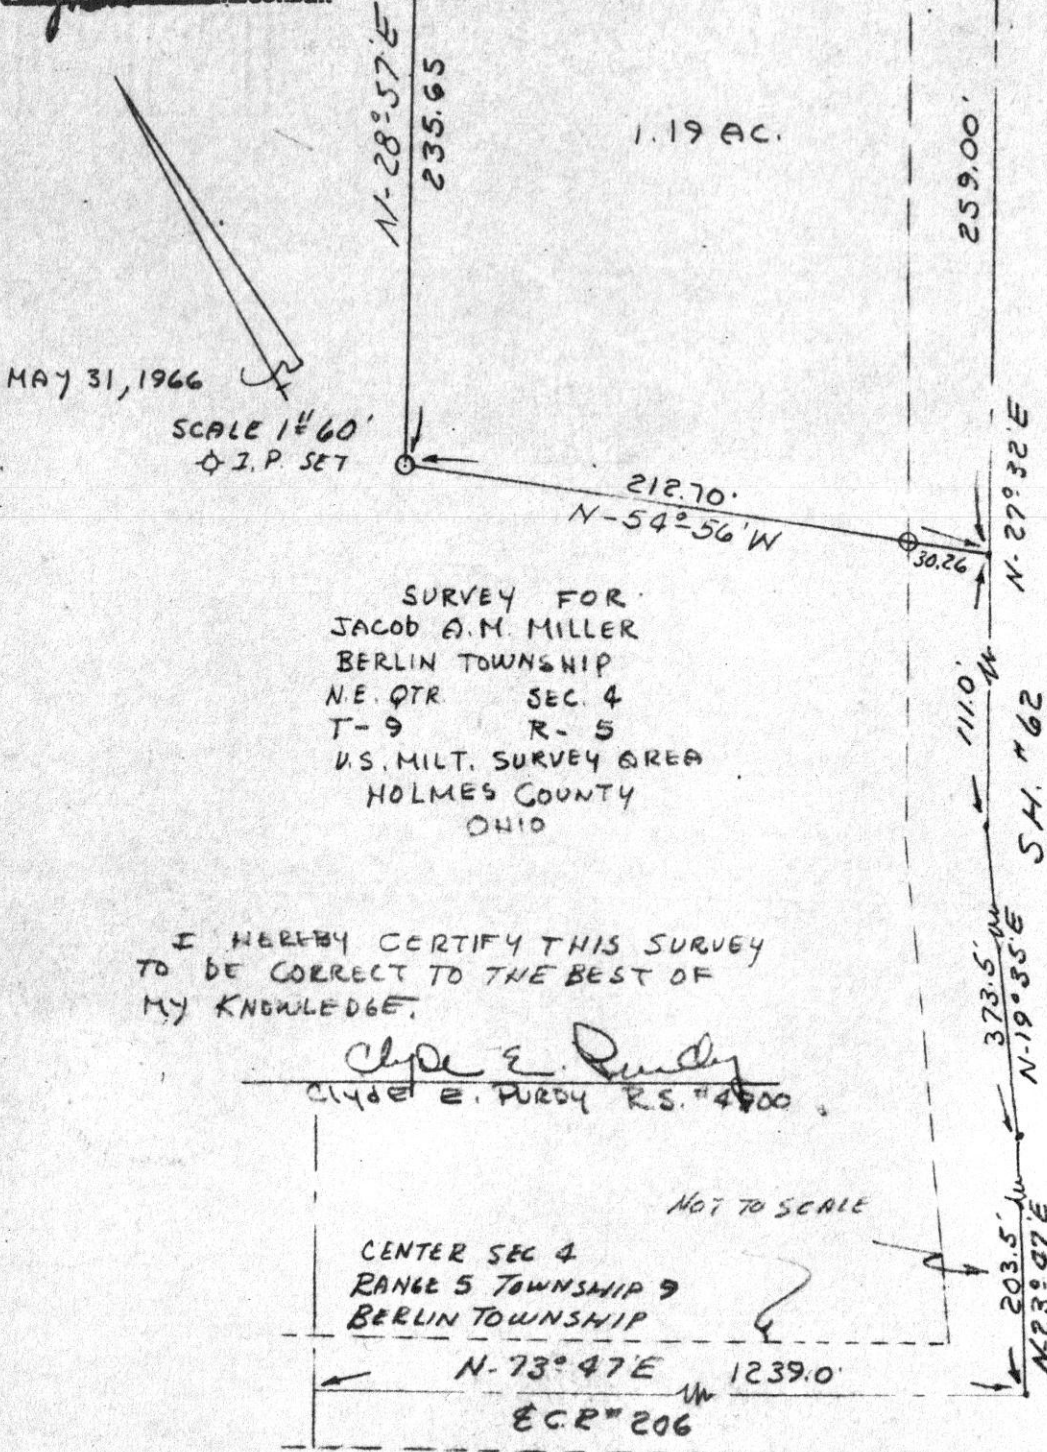 N-28°-57'E
235.65
1.19 AC.
259.00'
MAY 31, 1966
SCALE 1"=60'
I.P. SET
212.70'
N-54°-56'W
30.26
N-27°32'E
SURVEY FOR
JACOB A.M. MILLER
BERLIN TOWNSHIP
N.E. QTR. SEC. 4
T-9 R-5
U.S. MILT. SURVEY AREA
HOLMES COUNTY
OHIO
111.0'
S.H. #62
I HEREBY CERTIFY THIS SURVEY
TO BE CORRECT TO THE BEST OF
MY KNOWLEDGE.
373.5'
N-19°35'E
Clyde E. Purdy
Clyde E. PURDY R.S. #
NOT TO SCALE
CENTER SEC 4
RANGE 5 TOWNSHIP 9
BERLIN TOWNSHIP
203.5'
N-73°47'E 1239.0'
℄ C.R. #206